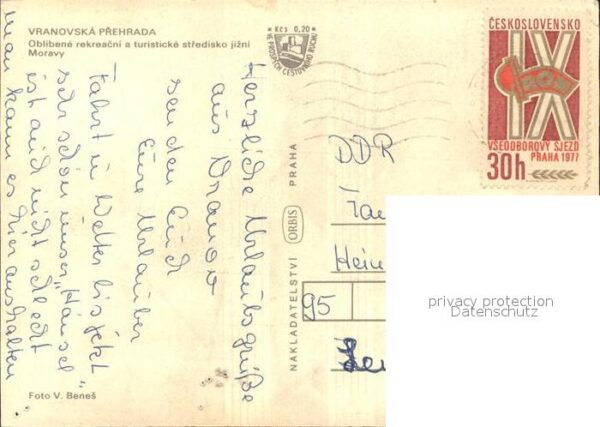 VRANOVSKÁ PŘEHRADA
Oblíbené rekreační a turistické středisko jižní
Moravy
Kčs 0,20
VE PROSPĚCH CESTOVNÍHO RUCHU
ČESKOSLOVENSKO
IX
VŠEODBOROVÝ SJEZD
PRAHA 1977
30h
Herzliche Urlaubsgrüße
aus Vranov
senden Euch
Eure Urlauber
Fahrt u Wetter bis jetzt
sehr schön unser "Häusel"
ist auch nicht schlecht
man kann es hier aushalten
NAKLADATELSTVÍ ORBIS PRAHA
DDR
Hein
95
Foto V. Beneš
privacy protection
Datenschutz